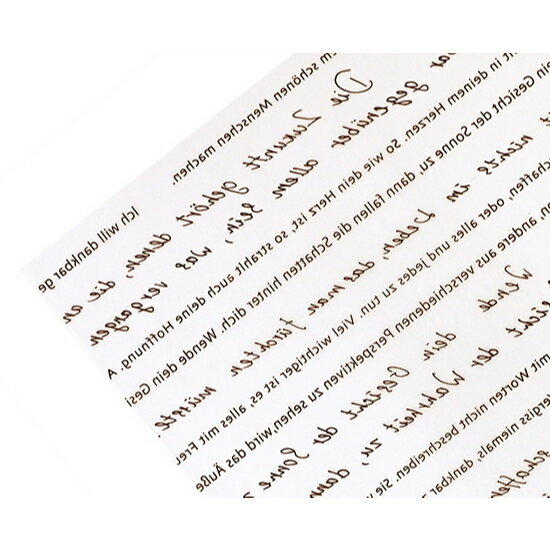 m schönen Menschen machen. Ich will dankbar ge
Die Zukunft gehört denen, die an
gegenüber allem sein, was vergangen
t in deinem Herzen. So wie dein Herz ist, so strahlt auch deine Hoffnung. A
in Gesicht der Sonne zu, dann fallen die Schatten hinter dich. Wende dein Gesi
nichts im Leben, das man fürchten müsste
chaffen, oder alles und jedes zu tun. Viel wichtiger ist es, alles mit Freu
n, andere aus verschiedenen Perspektiven zu sehen, wird das Äuße
Wende dein Gesicht der Sonne z
der Wahrheit zu, dann
mit Worten nicht beschreiben. Sie w
ergiss niemals, dankbar z
schaffen